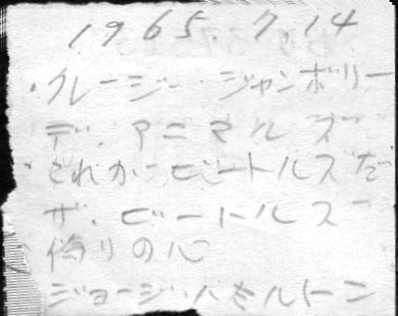 1965.7.14
・クレージー・ジャンボリー
デ.アニマルズ
・これがビートルズだ
ザ.ビートルズ
偽りの心
ジョージ・ハミルトン